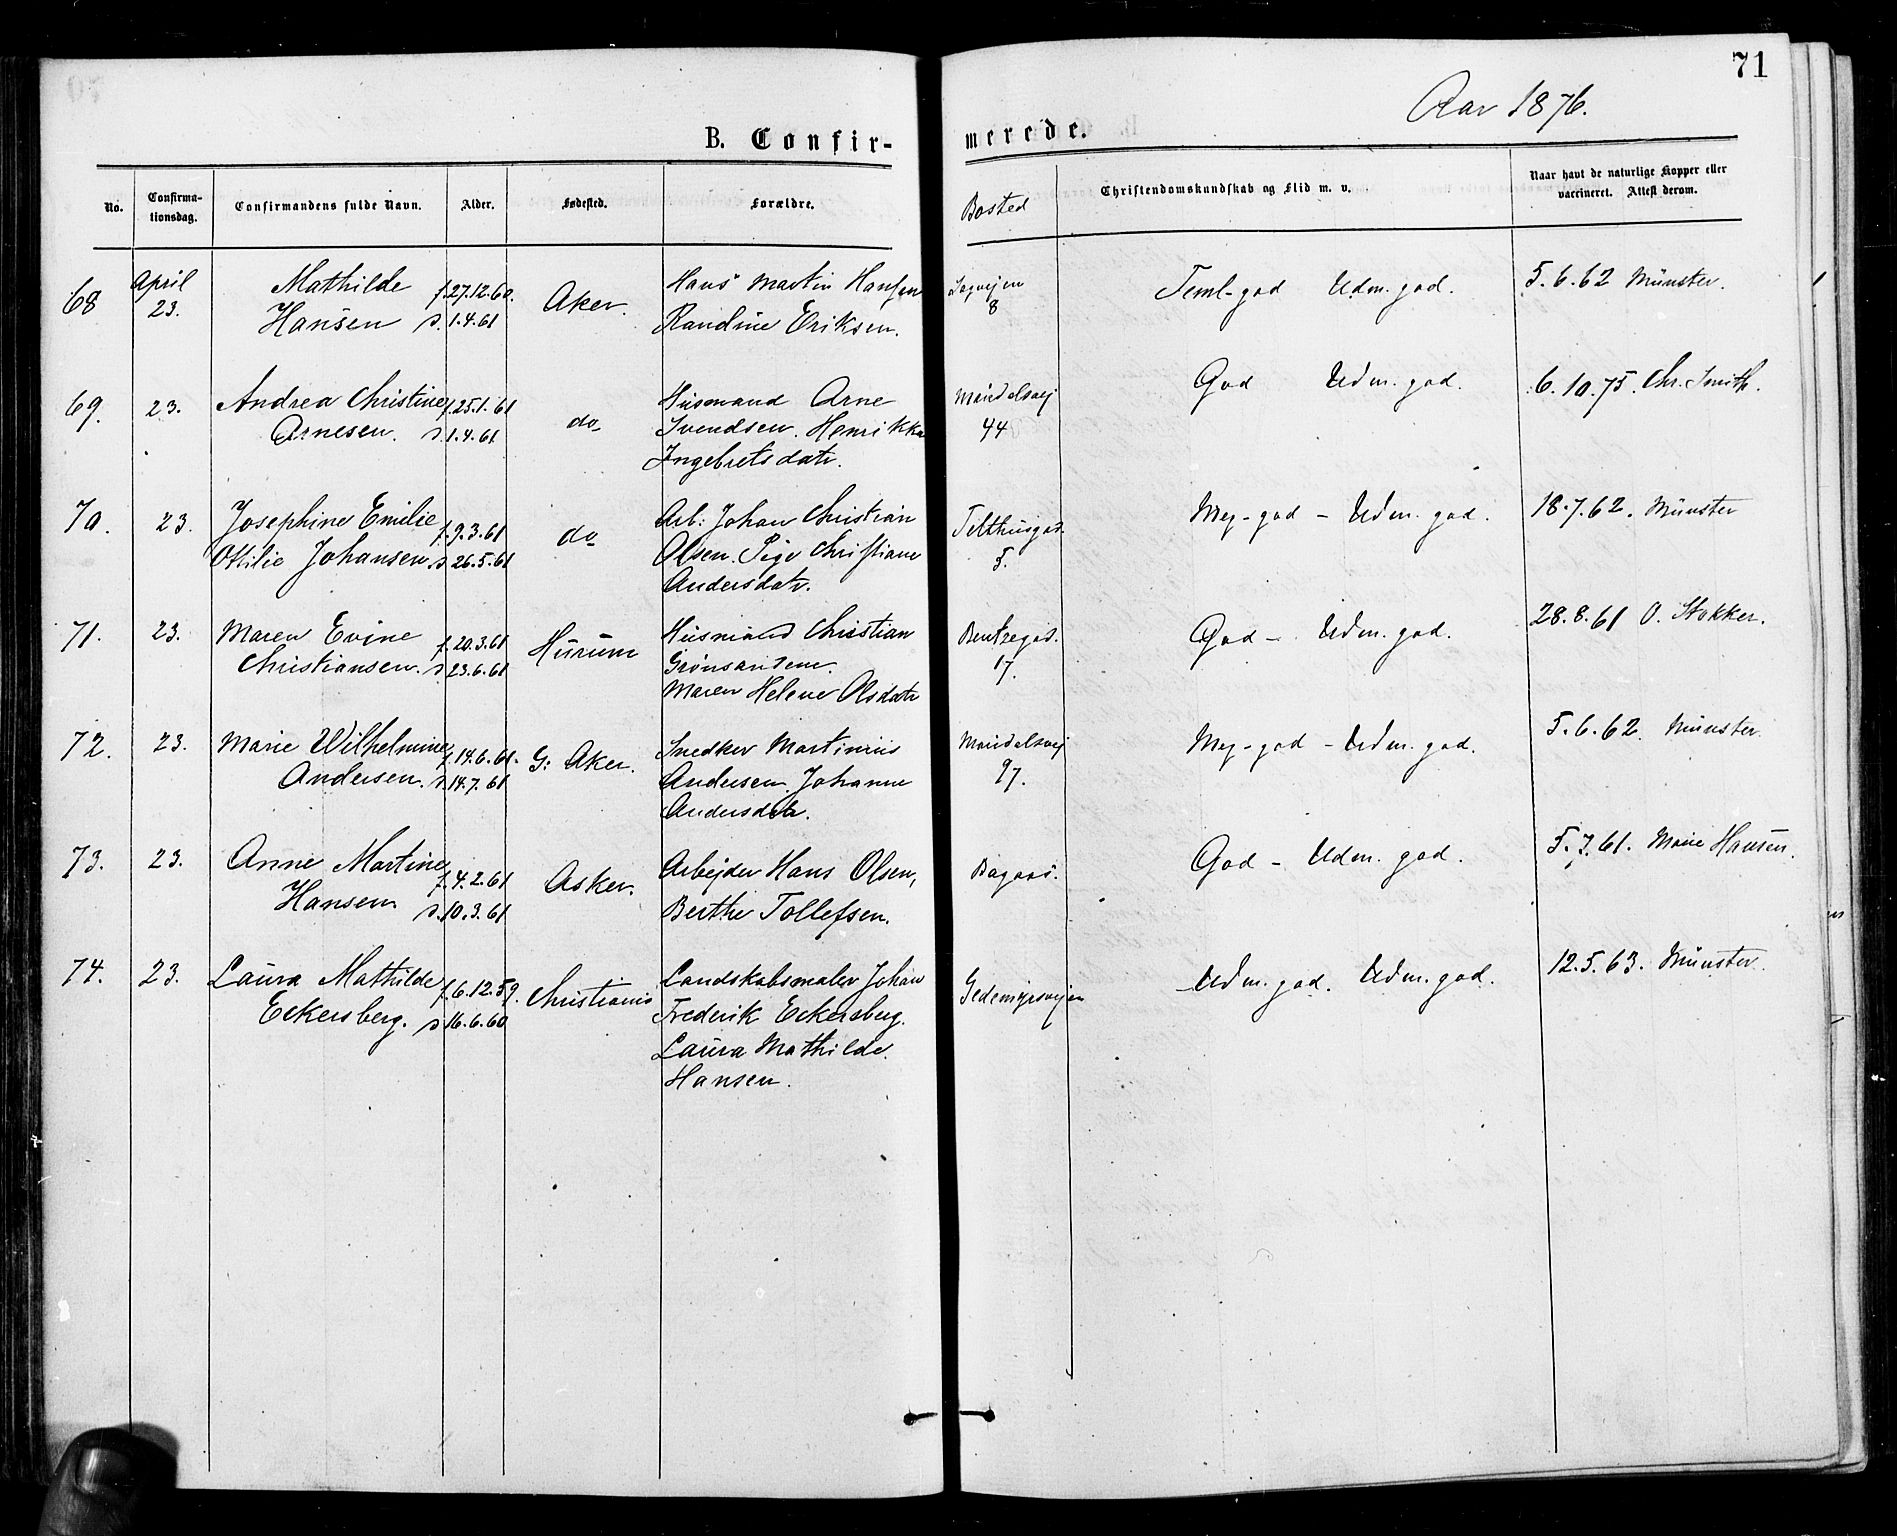 71
Aar 1876.
B. Confir-
merede.
No.
Confirma-
tionsdag.
Confirmandens fulde Navn.
Alder.
Fødested.
Forældre.
Bosted
Christendomskundskab og Flid m. v.
Naar havt de naturlige Kopper eller
vaccineret. Attest derom.
68 April Mathilde f. 27.12.60. Aker. Hans Martin Hansen 8 Teml-god Udm. god. 5.6.62 Münster.
23. Hansen d. 1.4.61 Randine Eriksen.
69. 23. Andrea Christine f. 25.1.61 do Husmand Arne 44 God Udm. god. 6.10.75. Chr. Smith.
Arnesen. d. 1.4.61 Svendsen. Henrikka
Ingebretsdatr.
70. 23. Josephine Emilie f. 9.3.61 do Arb: Johan Christian Telthusgad. Meg-god - Udm. god. 18.7.62. Münster
Ottilie Johansen d. 26.5.61 Olsen. Pige Christiane 5.
Andersdatr.
71. 23. Maren Evine f. 20.3.61 Hurum Husmand Christian 17. God - Udm. god. 28.8.61 O. Stokker.
Christiansen. d. 23.6.61 Grønsandem.
Maren Helene Olsdatr
72. 23. Marie Wilhelmine f. 14.6.61. G: Aker. Snedker Martinius 97. Meg-god - Udm. god. 5.6.62. Münster.
Andersen. d. 14.7.61 Andersen. Johanne
Andersdatr.
73. 23. Anne Martine f. 4.2.61 Asker. Arbejder Hans Olsen, Bagaas. God - Udm. god. 5.7.61. Marie Hansen.
Hansen d. 10.3.61 Berthe Tollefsen.
74. 23. Laura Mathilde f. 6.12.59. Christiania Landskabsmaler Johan Gedemyrsvejen Udm. god. Udm. god. 12.5.63. Münster.
Eckersberg. d. 16.6.60 Frederik Eckersberg.
Laura Mathilde
Hansen.